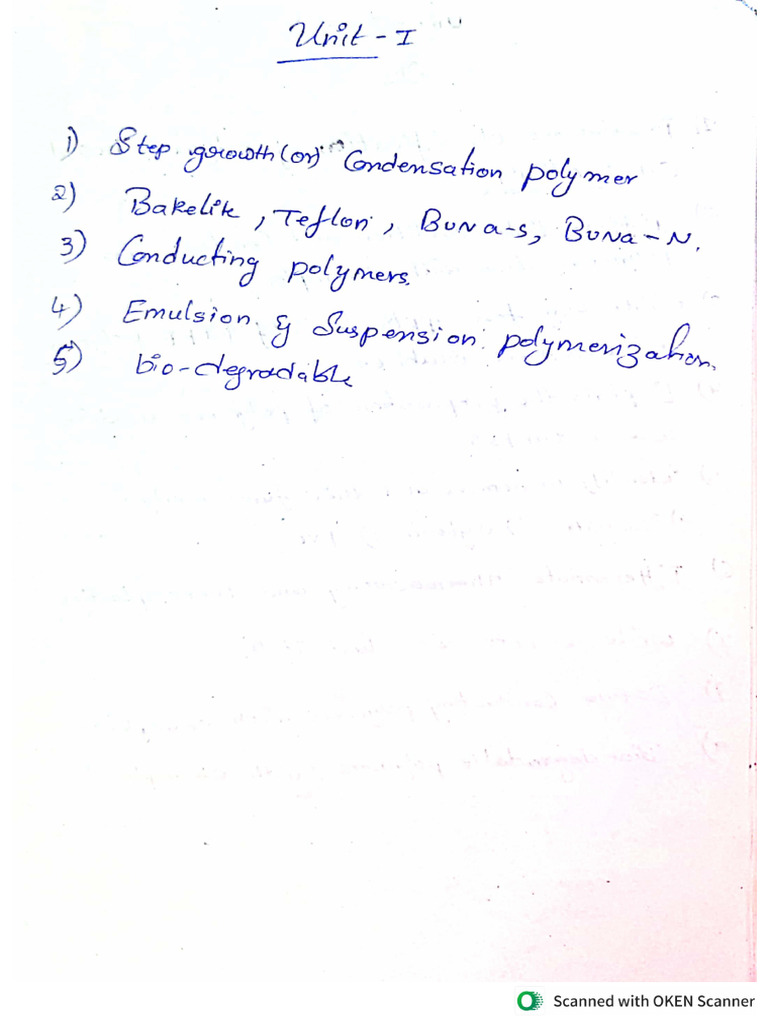 Unit - I
1) Step growth (or) Condensation polymer
2) Bakelite, Teflon, BUNa-s, BUNa-N.
3) Conducting polymers.
4) Emulsion & Suspension polymerization.
5) bio-degradable
Scanned with OKEN Scanner